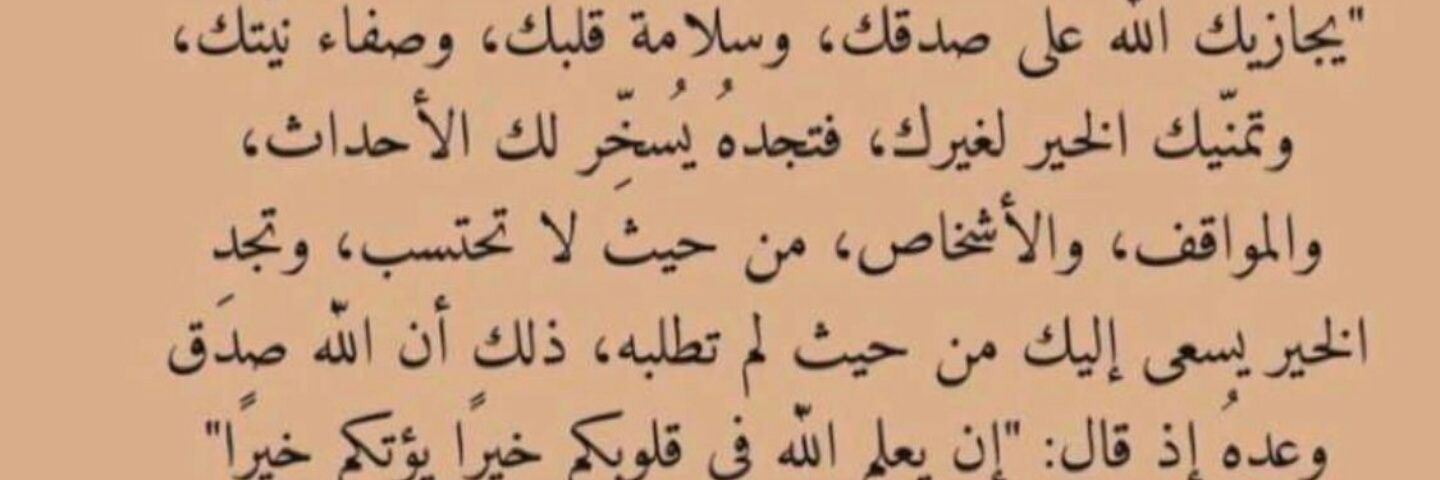 "يجازيك الله على صدقك، وسلامة قلبك، وصفاء نيّتك،
وتمنّيك الخير لغيرك، فتجدهُ يُسخِّر لك الأحداث،
والمواقف، والأشخاص، من حيث لا تحتسب، وتجد
الخير يسعى إليك من حيث لم تطلبه، ذلك أن الله صدَق
وعدهُ إذ قال: "إن يعلم الله في قلوبكم خيرًا يؤتكم خيرًا"